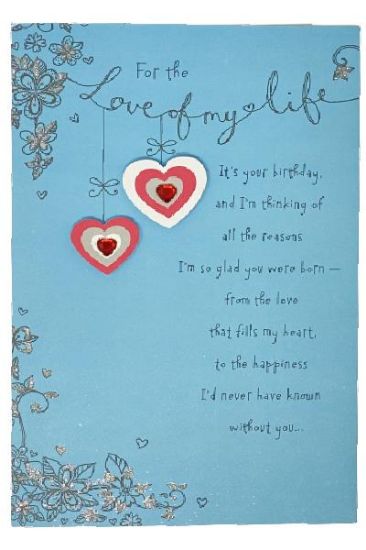 For the
Love of my life
It's your birthday,
and I'm thinking of
all the reasons
I'm so glad you were born —
from the love
that fills my heart,
to the happiness
I'd never have known
without you...